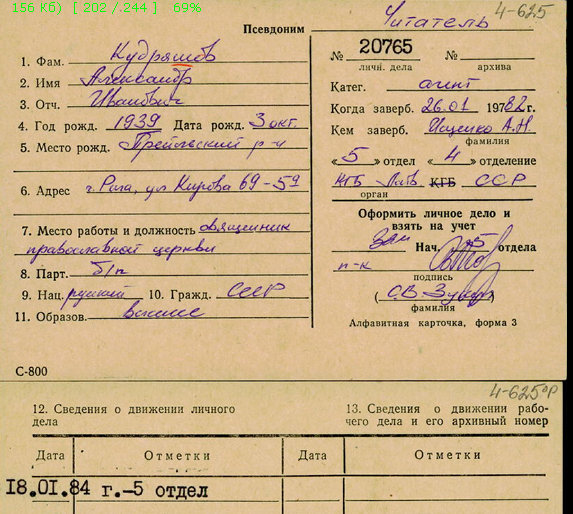 156 Кб) [ 202 / 244 ] 69%
4-625
Псевдоним Читатель
1. Фам. Кудряшов
2. Имя Александр
3. Отч. Иванович
4. Год рожд. 1939 Дата рожд. 3 окт
5. Место рожд. Прейльский р-н
6. Адрес г. Рига, ул Кирова 69-59
7. Место работы и должность священник
православной церкви
8. Парт. б/п
9. Нац. русский 10. Гражд. СССР
11. Образов. высшее
С-800
№ 20765 №
личн. дела архива
Катег. агент
Когда заверб. 26.01 1982г.
Кем заверб. Ищенко А.Н.
фамилия
«5» отдел «4» отделение
КГБ Латв КГБ ССР
орган
Оформить личное дело и
взять на учет
Зам Нач. 5 отдела
п-к
подпись
(С.В. )
фамилия
Алфавитная карточка, форма 3
4-625 ор
12. Сведения о движении личного
дела
13. Сведения о движении рабо-
чего дела и его архивный номер
Дата Отметки Дата Отметки
18.01.84 г.-5 отдел